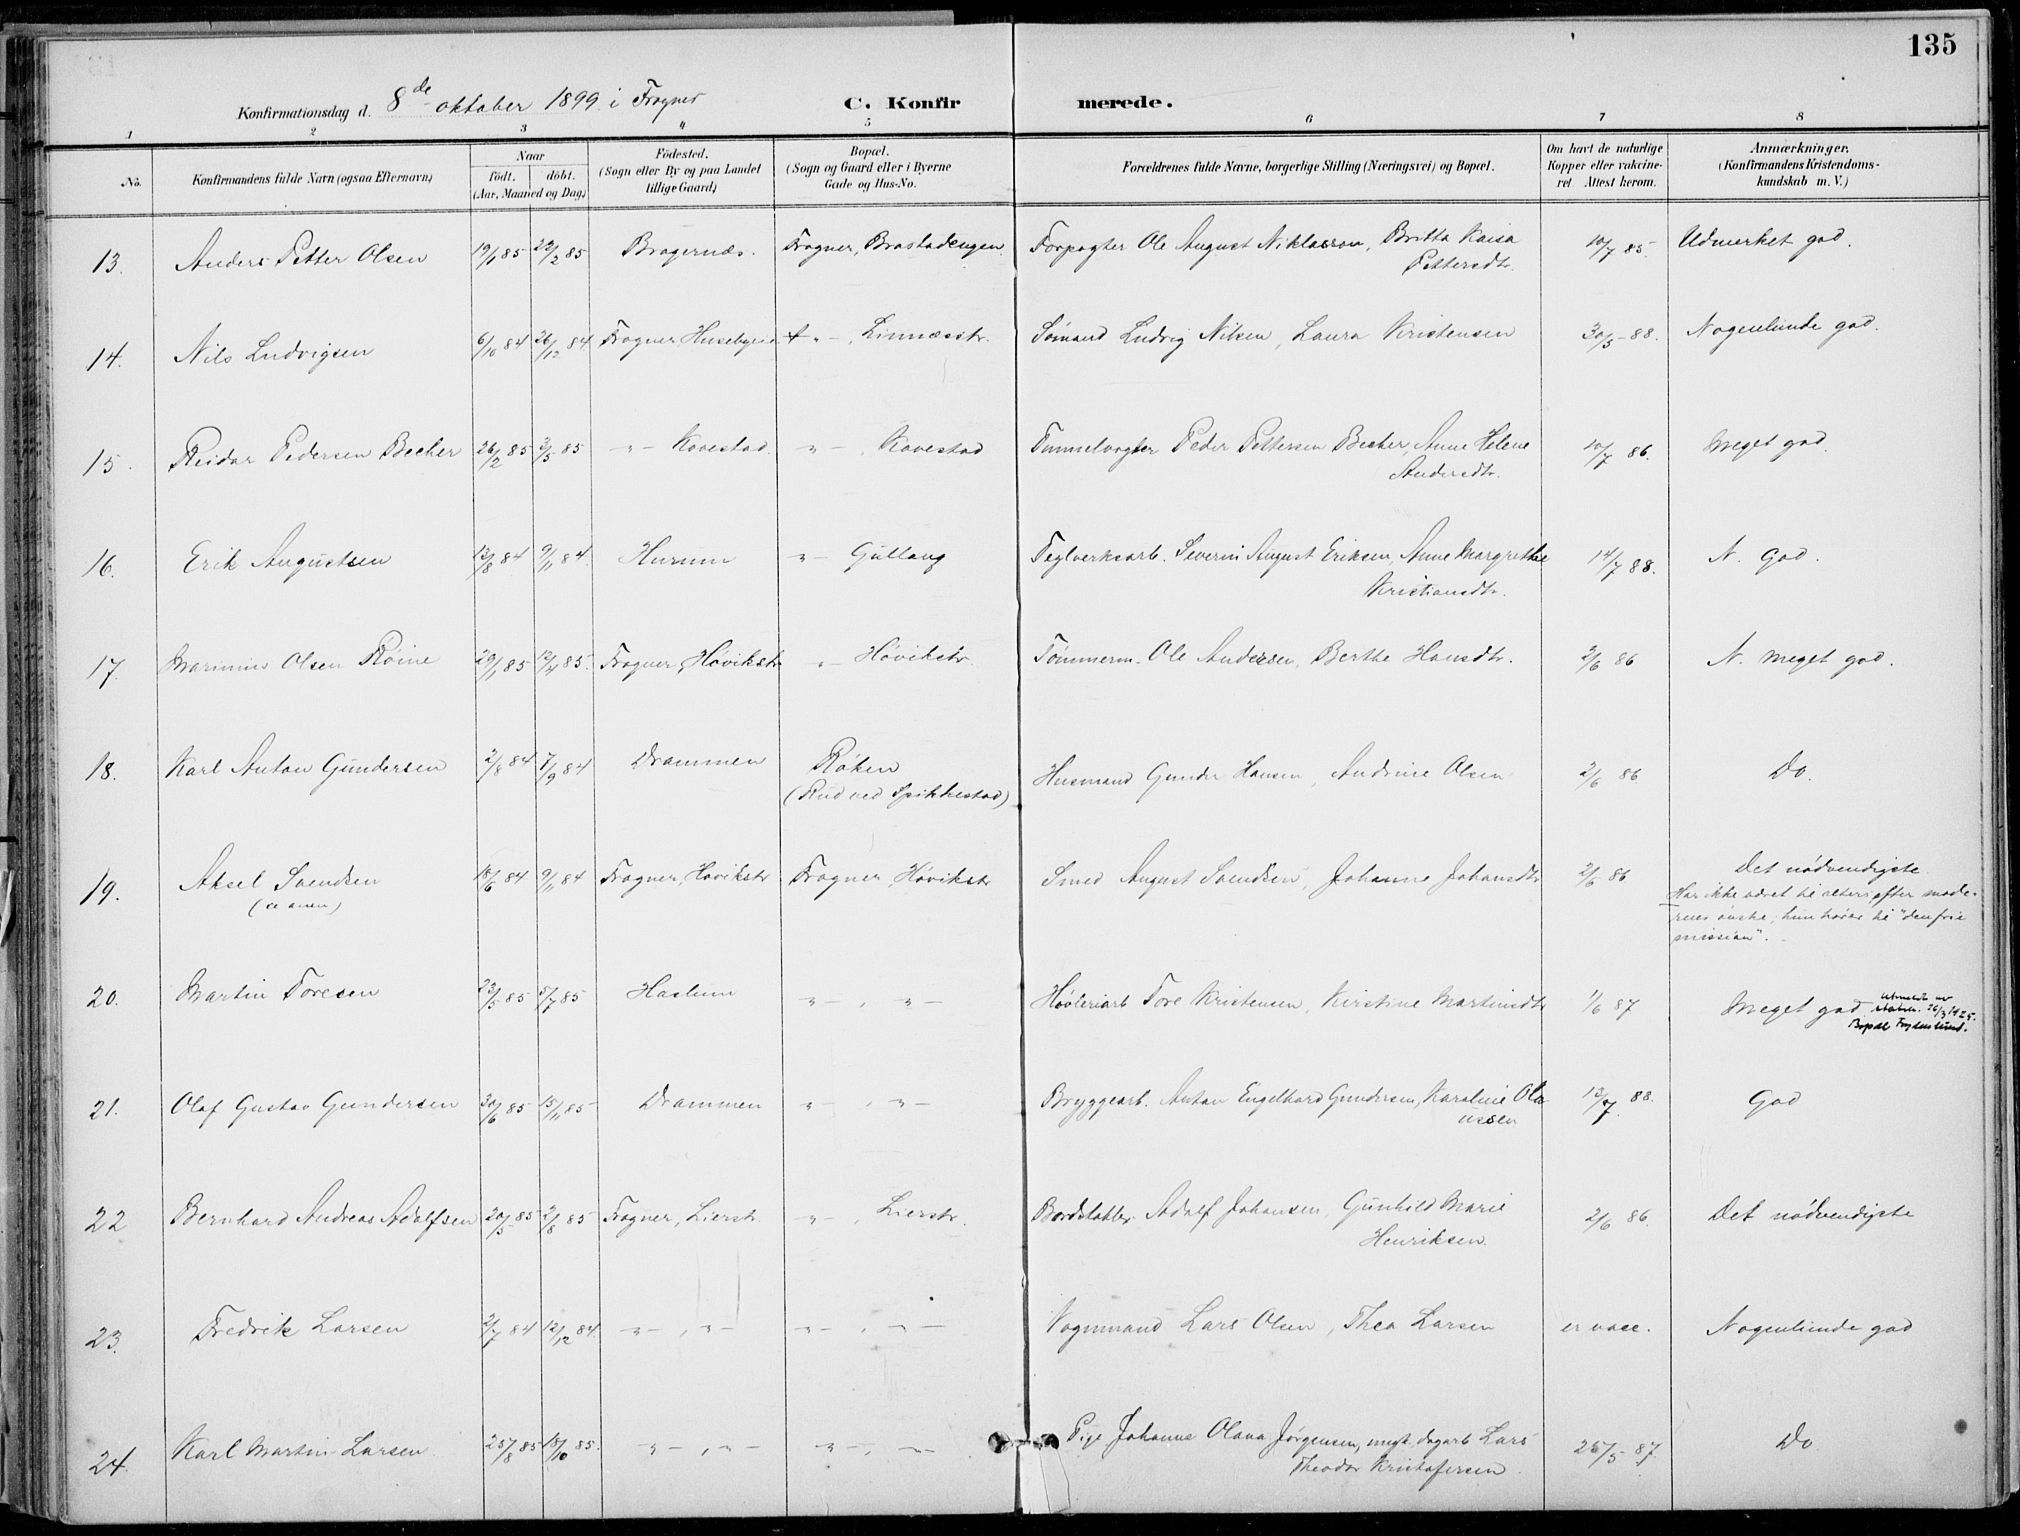 135
Konfirmationsdag d. 8de oktober 1899 i Frogner
C. Konfirmerede.
1 2 3 4 5 6 7 8
No.
Konfirmandens fulde Navn (ogsaa Efternavn)
Naar
födt. döbt.
(Aar, Maaned og Dag)
Födested.
(Sogn eller By og paa Landet
tillige Gaard)
Bopæl.
(Sogn og Gaard eller i Byerne
Gade og Hus-No.
Forældrenes fulde Navne, borgerlige Stilling (Næringsvei) og Bopæl.
Om havt de naturlige
Kopper eller vakcine-
ret Attest herom.
Anmærkninger.
(Konfirmandens Kristendoms-
kundskab m. V.)
13. Anders Petter Olsen 19/1 85 22/2 85 Bragernæs. Frogner, Brastadengen Forpagter Ole August Niklasson, Britta Kaisa 10/7 85. Udmerket god.
Pettersdtr.
14. Nils Ludvigsen 6/10 84 26/12 84 Frogner Husebyeie " - , Linnæsstr. Sømand Ludvig Nilsen, Laura Kristensen 30/5 - 88. Nogenlunde god.
15. Reidar Pedersen Becher 26/2 85 3/5 85 " - Kovestad " - , Kovestad Tunnelvogter Peder Pettersen Becher, Anne Helene 10/7 86. Meget god.
Andersdtr.
16. Erik Augustsen 13/8 84 9/11 84. Hurum " - Gullaug Teglverksarb. Severin August Eriksen, Anne Margrethe 14/7 88. N. god.
Kristiansdtr.
17. Marinius Olsen Röine 29/1 85 12/4 85. Frogner, Høvikstr " - Høvikstr. Tømmerm. Ole Andersen, Berthe Hansdtr. 2/6 86 N. meget god.
18. Karl Anton Gundersen 2/8 84 7/9 84 Drammen Røken Husmand Gunder Hansen, Andrine Olsen 2/6 86 Do.
(Rud ved Spikkestad)
19. Aksel Svendsen 18/6 84 9/11 84 Frogner, Høvikstr Frogner, Høvikstr Smed August Svendsen, Johanne Johansdtr 2/6 86 Det nødvendigste
Har ikke været til alters efter mode-
rens ønske; hun hører til "den frie
mission".
20. Martin Toresen 23/5 85 5/7 85 Haslum " - , " - Høvleriarb Tore Kristensen, Kirstine Martinsdtr 1/6 87 Meget god. Utmeldt av
staten. 26/3 1925.
Bopæl Frydenlund.
21. Olaf Gustav Gundersen 30/6 85 15/11 85 Drammen " - , " - Bryggearb. Anton Engelhard Gundersen, Karoline Ola 12/7 88. God
ussen
22 Bernhard Andreas Adolfsen 20/5 85 2/8 85 Frogner, Lierstr. " - , Lierstr. Bordstabler Adolf Johansen, Gunhild Marie 2/6 86. Det nødvendigste
Henriksen.
23. Fredrik Larsen 2/7 84 12/12 84. " - , " - " - , " - Vognmand Lars Olsen, Thea Larsen er vacc. Nogenlunde god
24. Karl Martin Larsen 25/8 85 18/10 85. " - , " - " - , " - Pige Johanne Olava Jørgensen, ungk. dagarb Lars 25/5 - 87. Do
Theodor Kristofersen